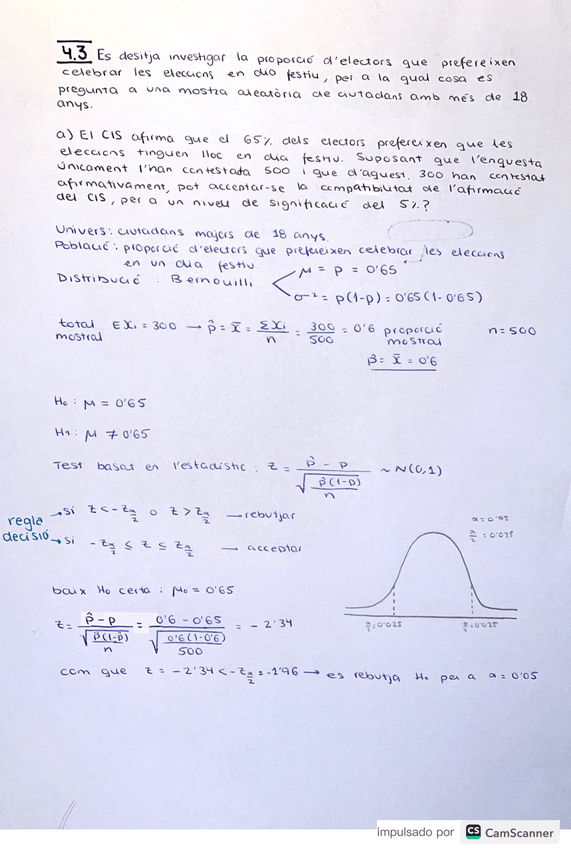 4.3 Es desitja investigar la proporció d'electors que prefereixen
celebrar les eleccions en dia festiu, per a la qual cosa es
pregunta a una mostra aleatòria de ciutadans amb més de 18
anys.
a) El CIS afirma que el 65% dels electors prefereixen que les
eleccions tinguen lloc en dia festiu. Suposant que l'enquesta
únicament l'han contestada 500 i que d'aquest, 300 han contestat
afirmativament, pot acceptar-se la compatibilitat de l'afirmació
del CIS, per a un nivell de significació del 5%?
Univers: ciutadans majors de 18 anys.
Població: proporció d'electors que prefereixen celebrar les eleccions
en un dia festiu.
Distribució: Bernouilli
μ = p = 0'65
σ² = p(1-p) = 0'65(1-0'65)
total mostral ΣXi = 300 → p̂ = x̄ = ΣXi/n = 300/500 = 0'6 proporció mostral n=500
p̂ = x̄ = 0'6
H₀: μ = 0'65
H₁: μ ≠ 0'65
Test basat en l'estadístic: z = (p̂ - p)/√(p̂(1-p̂)/n) ~ N(0,1)
regla decisió
→ si z < -z α/2 o z > z α/2 → rebutjar
→ si -z α/2 ≤ z ≤ z α/2 → acceptar
α = 0'05
α/2 = 0'025
α/2 = 0'025
α/2 = 0'025
baix H₀ certa: μ₀ = 0'65
z = (p̂ - p)/√(p̂(1-p̂)/n) = (0'6 - 0'65)/√(0'6(1-0'6)/500) = -2'34
com que z = -2'34 < -z α/2 = -1'96 → es rebutja H₀ per a α = 0'05
impulsado por CS CamScanner